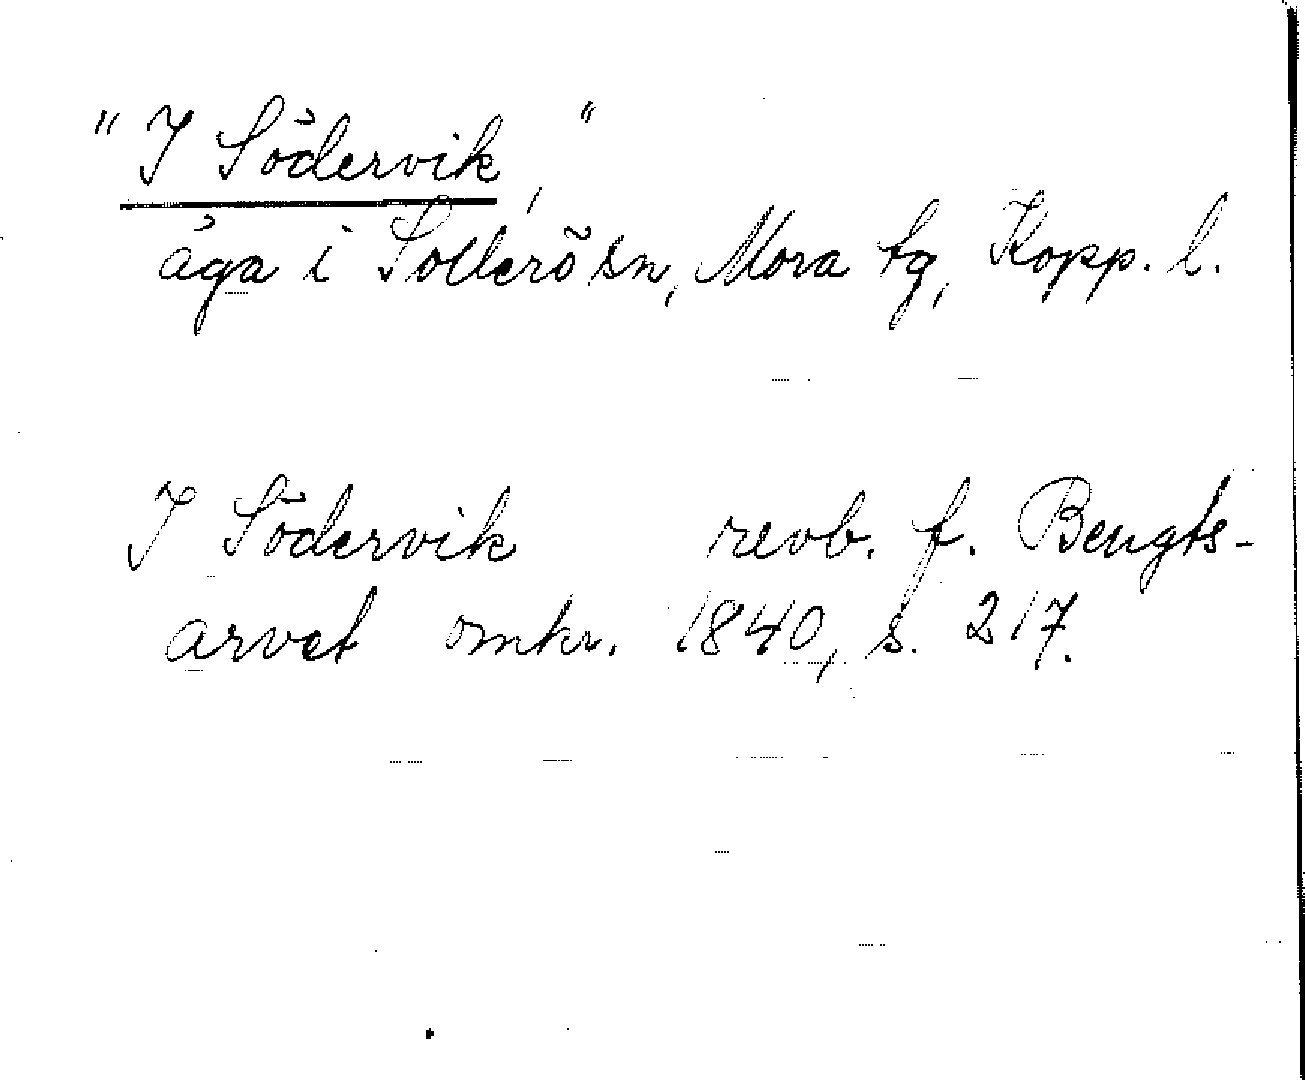 "I Södervik,"
äga i Sollerö sn, Mora tg, Kopp. l.
I Södervik revb. f. Bengts-
arvet omkr. 1840, s. 217.